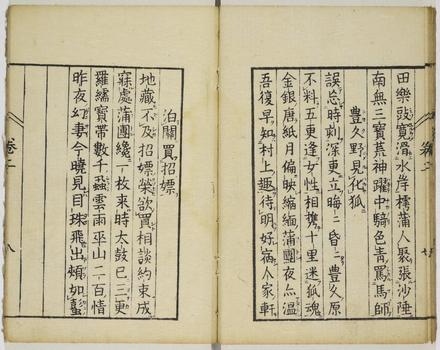 田樂豉寬滑水岸檽蒲人裂張沙陲
南無三寶荒神躍中騎色青罵馬師
豊久野見化狐
誤忘時刺深更立晦二昏二豊久原
不料五更逢女性相携十里迷狐魂
金銀唐紙月偏映縮緬蒲團夜亦溫
吾復早知村上趣待明好宿人家軒
泊關買招嫖
地藏不及招嫖榮欲買相談約束成
寐處蒲團纔一枚来時太鼓已三更
羅繻寶帶數千蝨雲雨平山二百情
昨夜幻妻今曉見目珠飛出頰如蟿
卷二
八